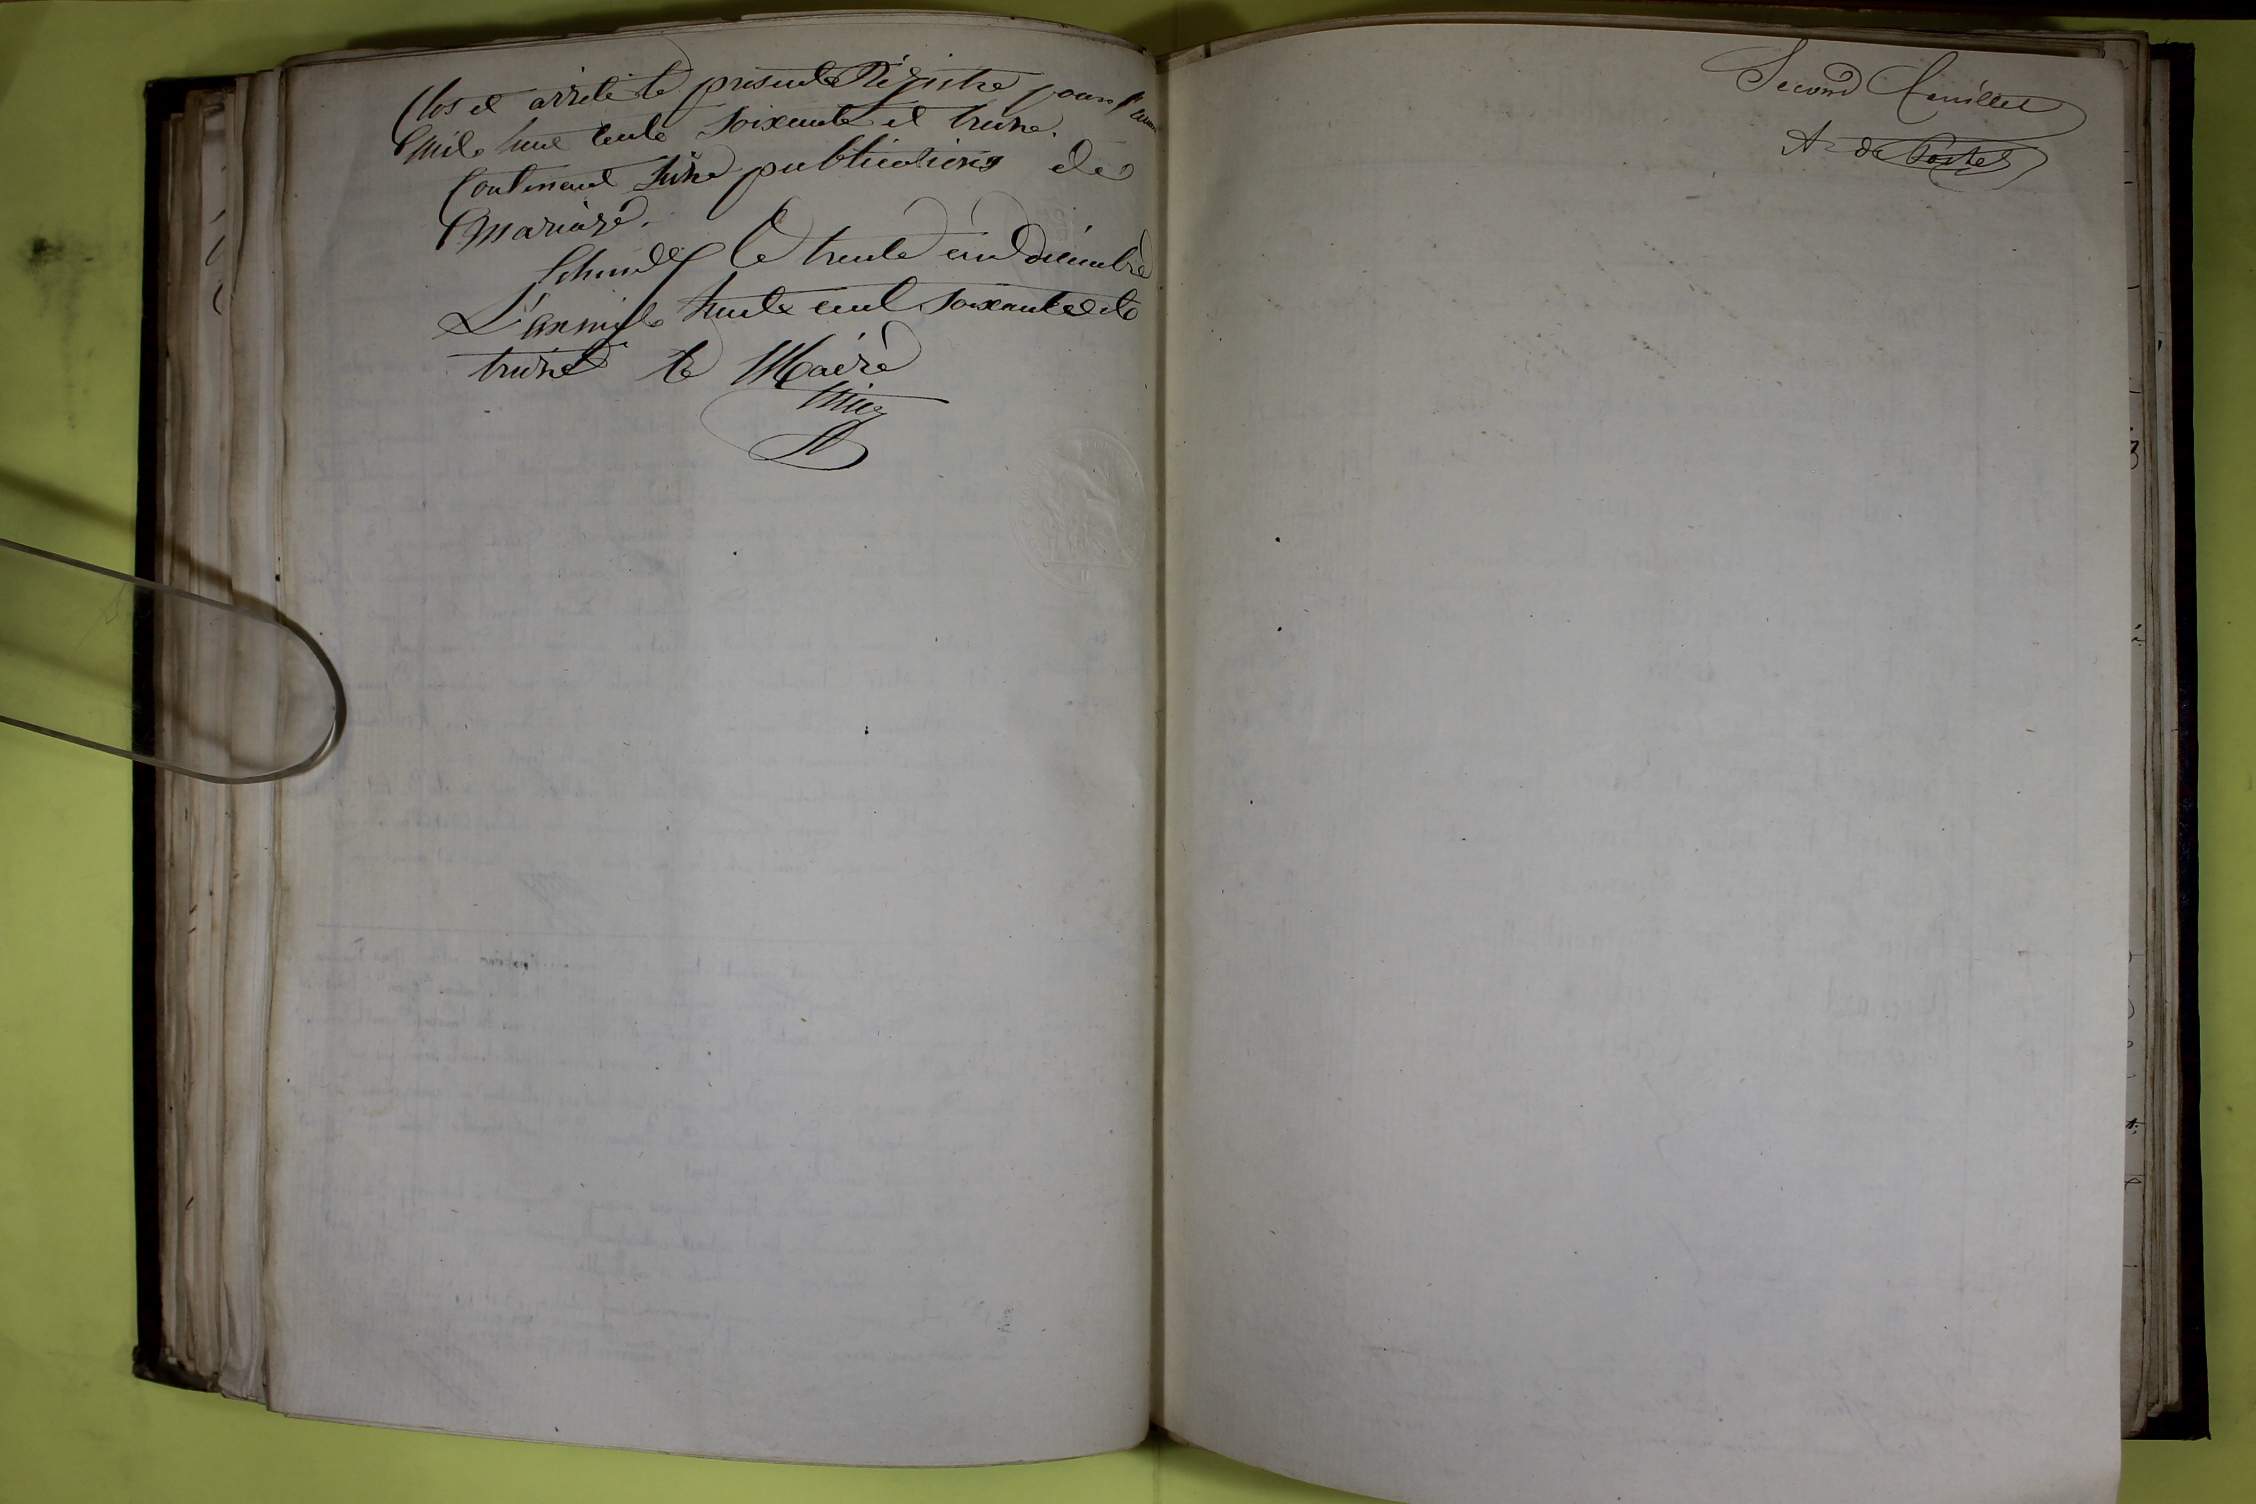 Clos et arrêté le présente Régistre pour l'année
Mile huit cente Soixante et treize.
Contenant Seize publications de
Mariàre.
le trente un Décembre
L'an mile huite cent Soixante et
treize le Maire
Second feuillet
A. de